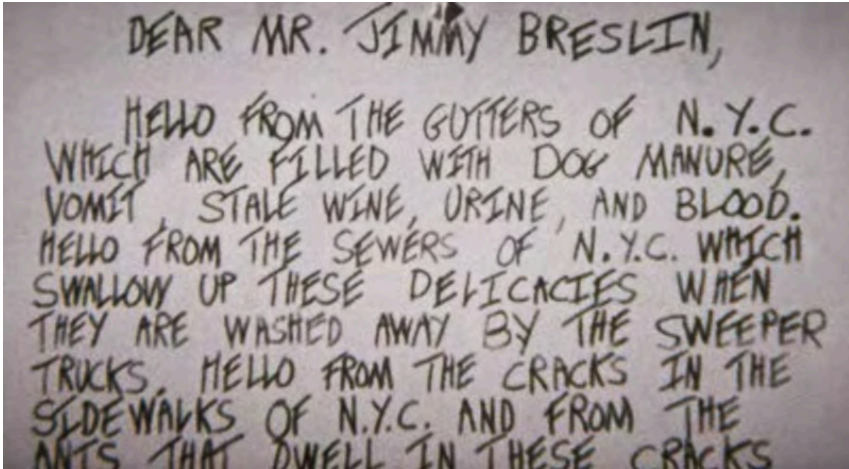 DEAR MR. JIMMY BRESLIN,
HELLO FROM THE GUTTERS OF N.Y.C.
WHICH ARE FILLED WITH DOG MANURE,
VOMIT, STALE WINE, URINE, AND BLOOD.
HELLO FROM THE SEWERS OF N.Y.C. WHICH
SWALLOW UP THESE DELICACIES WHEN
THEY ARE WASHED AWAY BY THE SWEEPER
TRUCKS. HELLO FROM THE CRACKS IN THE
SIDEWALKS OF N.Y.C. AND FROM THE
ANTS THAT DWELL IN THESE CRACKS